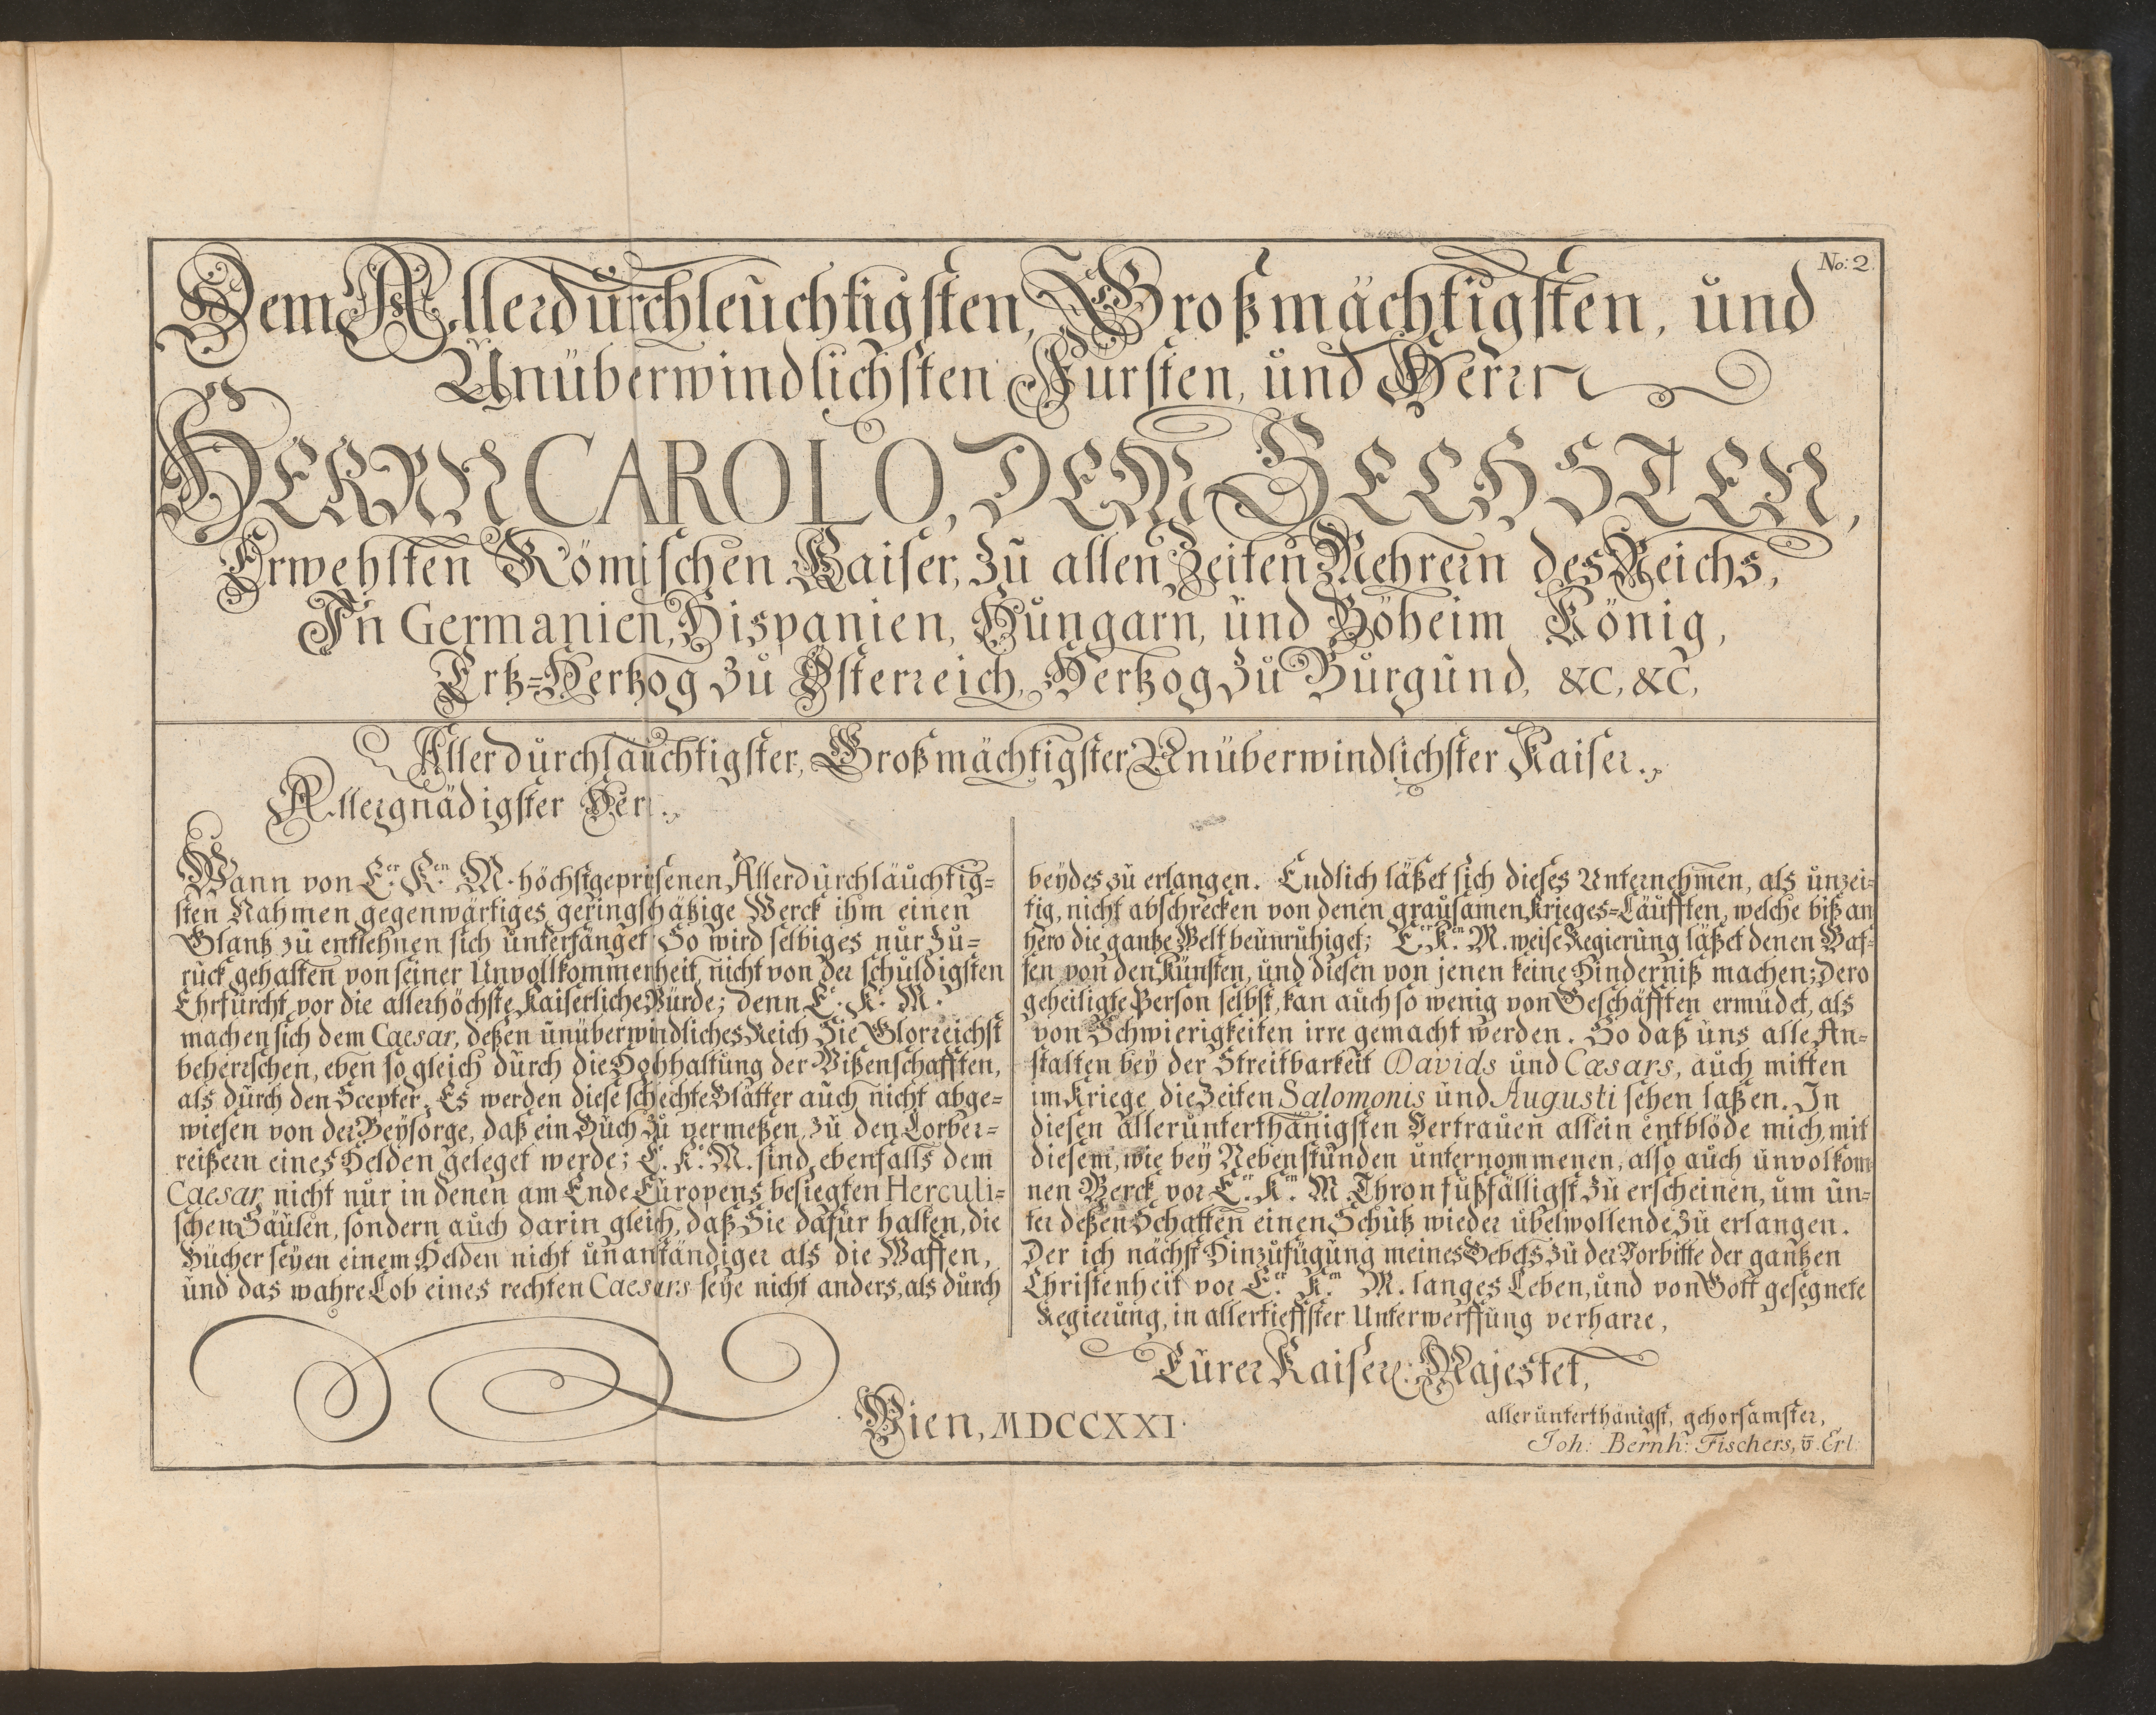 No: 2.
Dem Allerdurchleuchtigsten, Großmächtigsten, und
Unüberwindlichsten Fürsten, und Herrn
HERRN CAROLO, DEM SECHSTEN,
Erwehlten Römischen Kaiser, zu allen Zeiten Mehrern des Reichs,
In Germanien, Hispanien, Hungarn, und Böheim König,
Ertz=Hertzog zu Österreich, Hertzog zu Burgund, &c, &c,
Allerdurchläuchtigster, Großmächtigster Unüberwindlichster Kaiser.
Allergnädigster Herr.
Wann von Er. Kn. M. höchstgeprisenen Allerdurchläuchtig=
sten Nahmen gegenwärtiges geringschätzige Werck ihm einen
Glantz zu entlehnen sich unterfänget; So wird selbiges nur zu=
rück gehalten von seiner Unvollkommenheit, nicht von der schuldigsten
Ehrfurcht vor die allerhöchste Kaiserliche Würde; denn E. K. M.
machen sich dem Caesar, deßen unüberwindliches Reich Sie Glorreichst
beherrschen, eben so gleich durch die Hochhaltung der Wißenschafften,
als durch den Scepter. Es werden diese schlechte Blätter auch nicht abge=
wiesen von der Beysorge, daß ein Buch zu vermeßen zu den Lorber=
reißern eines Helden geleget werde; E. K. M. sind ebenfalls dem
Caesar, nicht nur in denen am Ende Europens besiegten Herculi=
schen Säulen, sondern auch darin gleich, daß Sie dafür halten, die
Bücher seyen einem Helden nicht unanständiger als die Waffen,
und das wahre Lob eines rechten Caesars seye nicht anders, als durch
beydes zu erlangen. Endlich läßet sich dieses Unternehmen, als unzei=
tig, nicht abschrecken von denen grausamen Krieges=Läufften, welche biß an
hero die gantze Welt beunruhiget; Er. Kn. M. weise Regierung läßet denen Waf=
fen von den Künsten, und diesen von jenen keine Hinderniß machen; Dero
geheiligte Person selbst, kan auch so wenig von Geschäfften ermüdet, als
von Schwierigkeiten irre gemacht werden. So daß uns alle An=
stalten bey der Streitbarkeit Davids und Cæsars, auch mitten
im Kriege die Zeiten Salomonis und Augusti sehen laßen. In
diesen allerunterthänigsten Vertrauen allein entblöde mich, mit
diesem, wie bey Nebenstunden unternommenen, also auch unvolkom=
nen Werck vor Er. Kn. M. Thron fußfälligst zu erscheinen, um un=
ter deßen Schatten einen Schutz wieder übelwollende zu erlangen.
Der ich nächst Hinzufügung meines Gebets zu der Vorbitte der gantzen
Christenheit vor Er. Kn. M. langes Leben, und von Gott gesegnete
Regierung, in allertieffster Unterwerffung verharre,
Eurer Kaiserl: Majestet,
Wien, MDCCXXI.
allerunterthänigst, gehorsamster,
Joh: Bernh: Fischers, v. Erl: